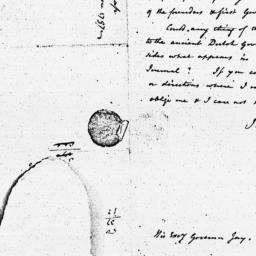 of the founders & first Gov
Could any thing of
to the ancient Dutch Gov
sides what appears in
Journal? If you co
or directions where I m
oblige me & I can not
I
His Excy Governor Jay.